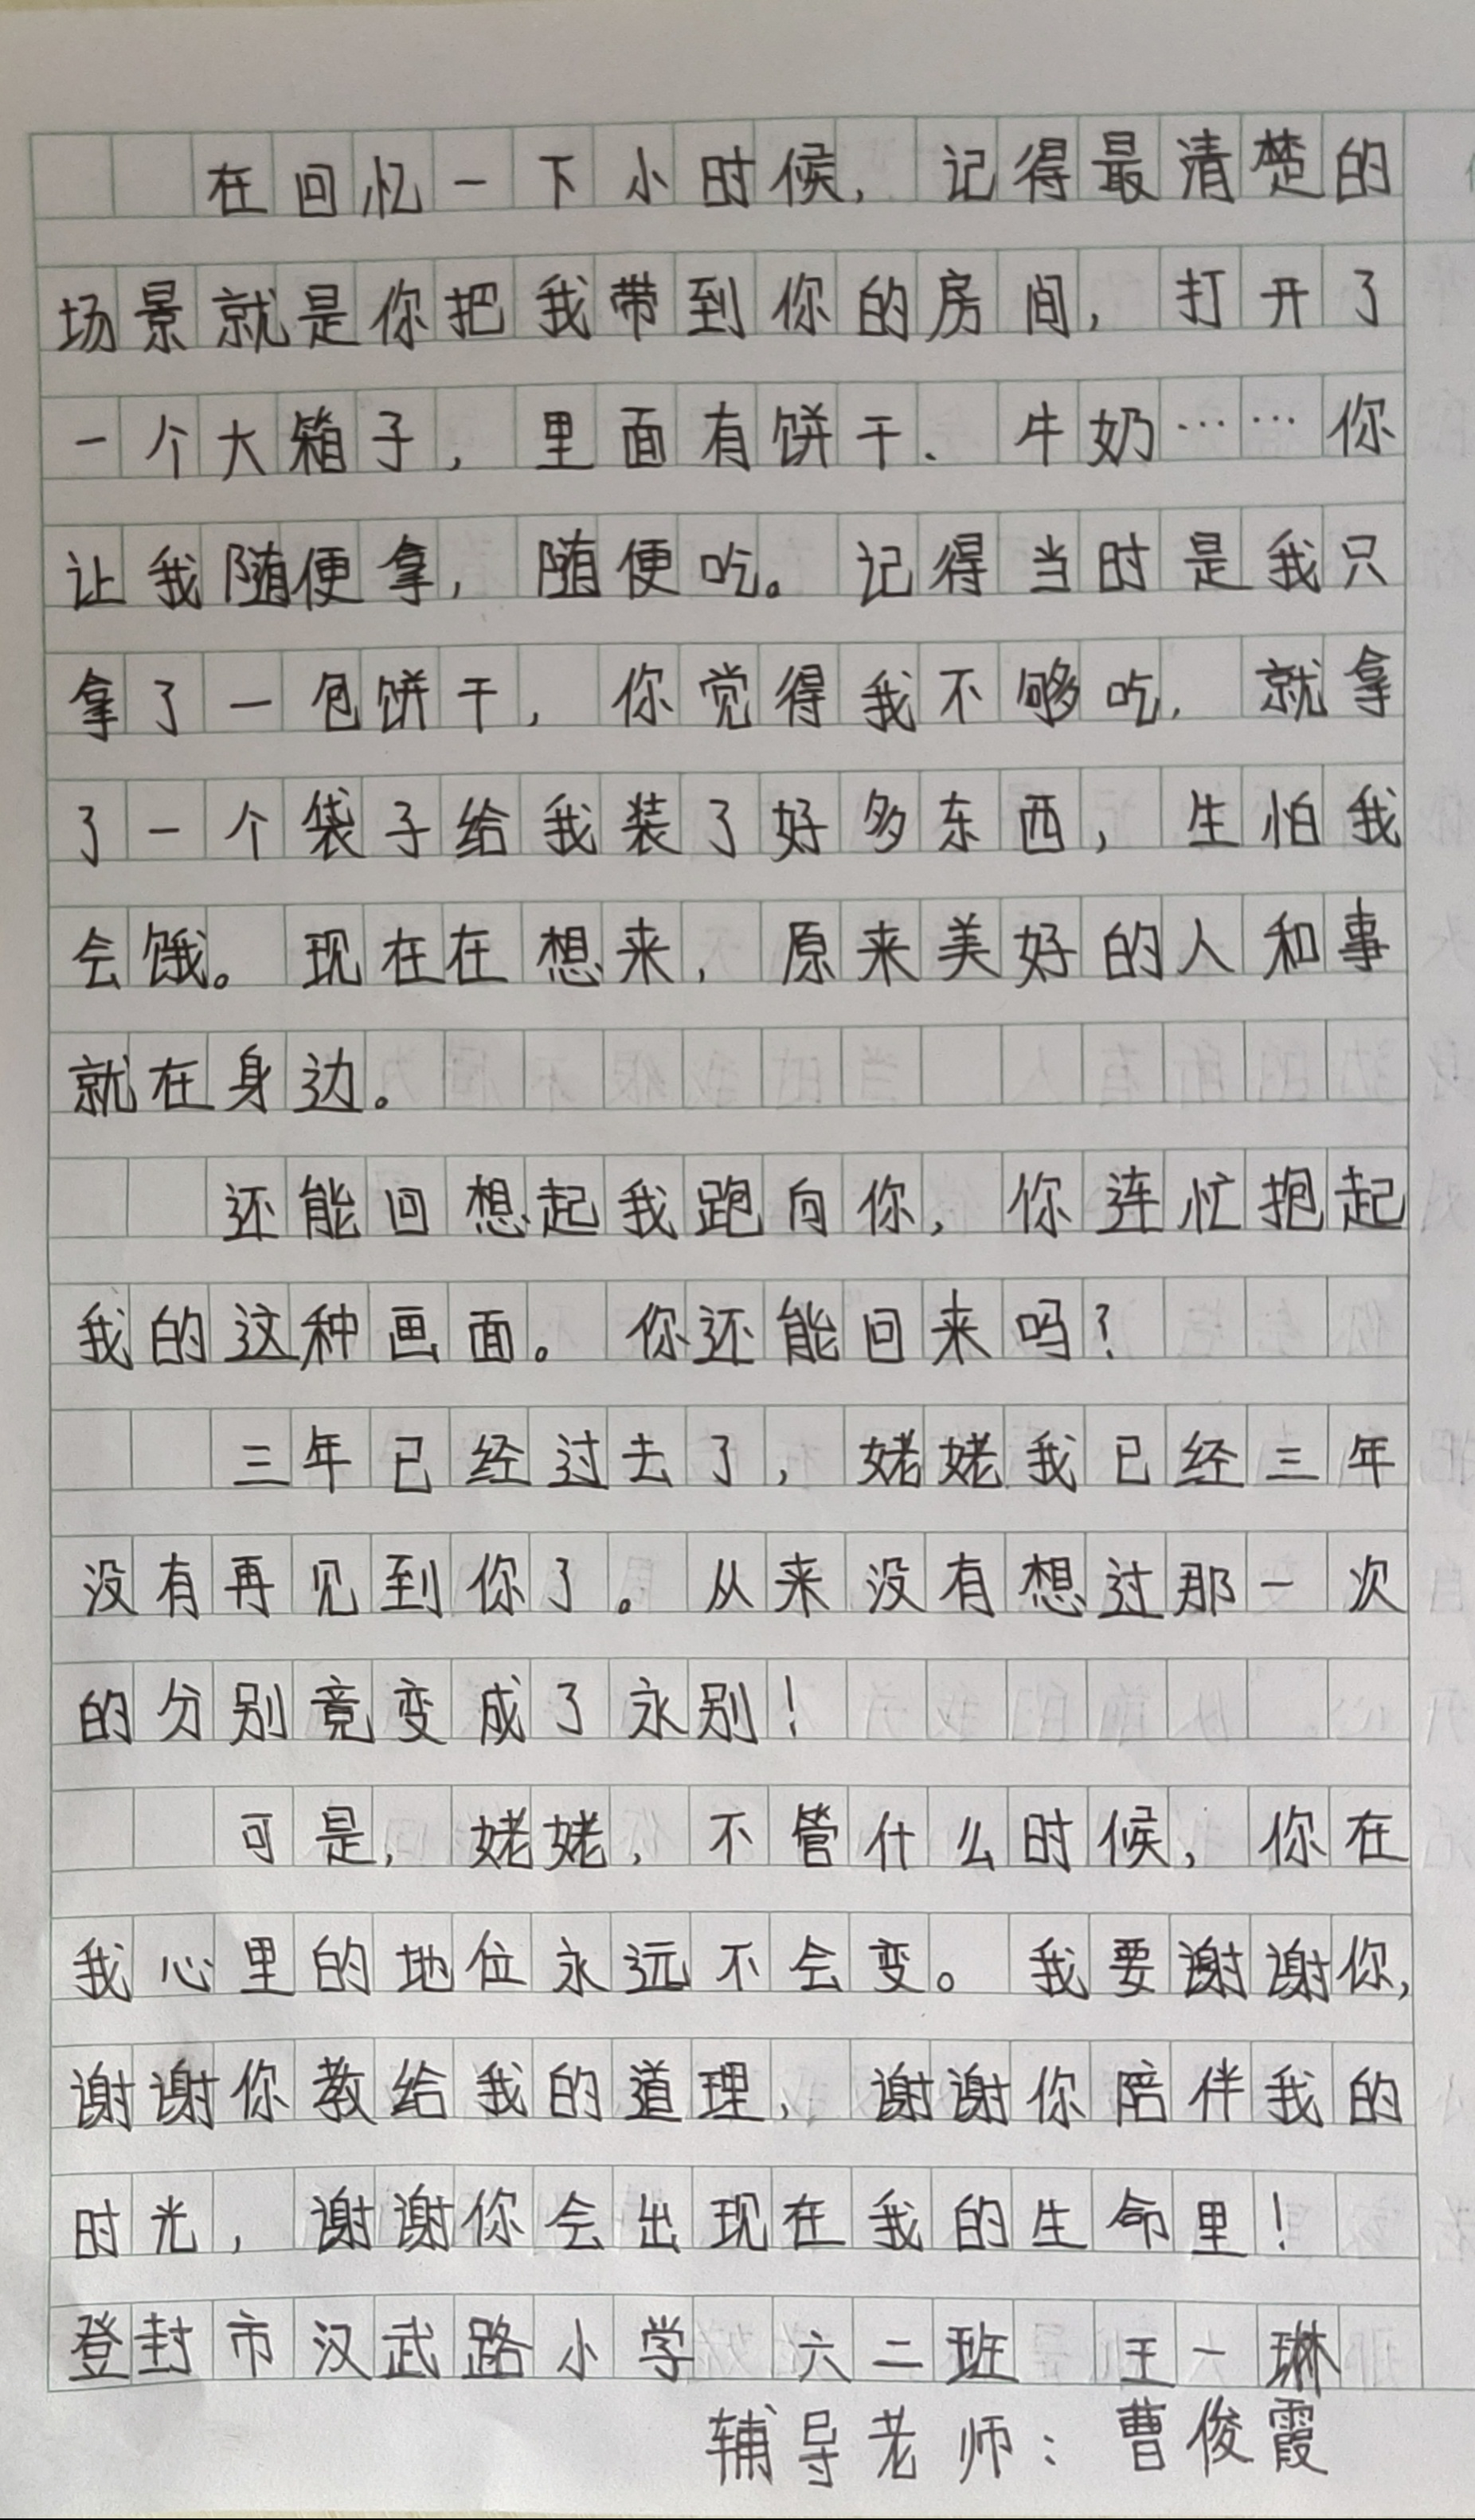 在回忆一下小时候，记得最清楚的
场景就是你把我带到你的房间，打开了
一个大箱子，里面有饼干、牛奶……你
让我随便拿，随便吃。记得当时是我只
拿了一包饼干，你觉得我不够吃，就拿
了一个袋子给我装了好多东西，生怕我
会饿。现在在想来，原来美好的人和事
就在身边。
还能回想起我跑向你，你连忙抱起
我的这种画面。你还能回来吗？
三年已经过去了，姥姥我已经三年
没有再见到你了。从来没有想过那一次
的分别竟变成了永别！
可是，姥姥，不管什么时候，你在
我心里的地位永远不会变。我要谢谢你，
谢谢你教给我的道理，谢谢你陪伴我的
时光，谢谢你会出现在我的生命里！
登封市汉武路小学 六二班 王一琳
辅导老师：曹俊霞